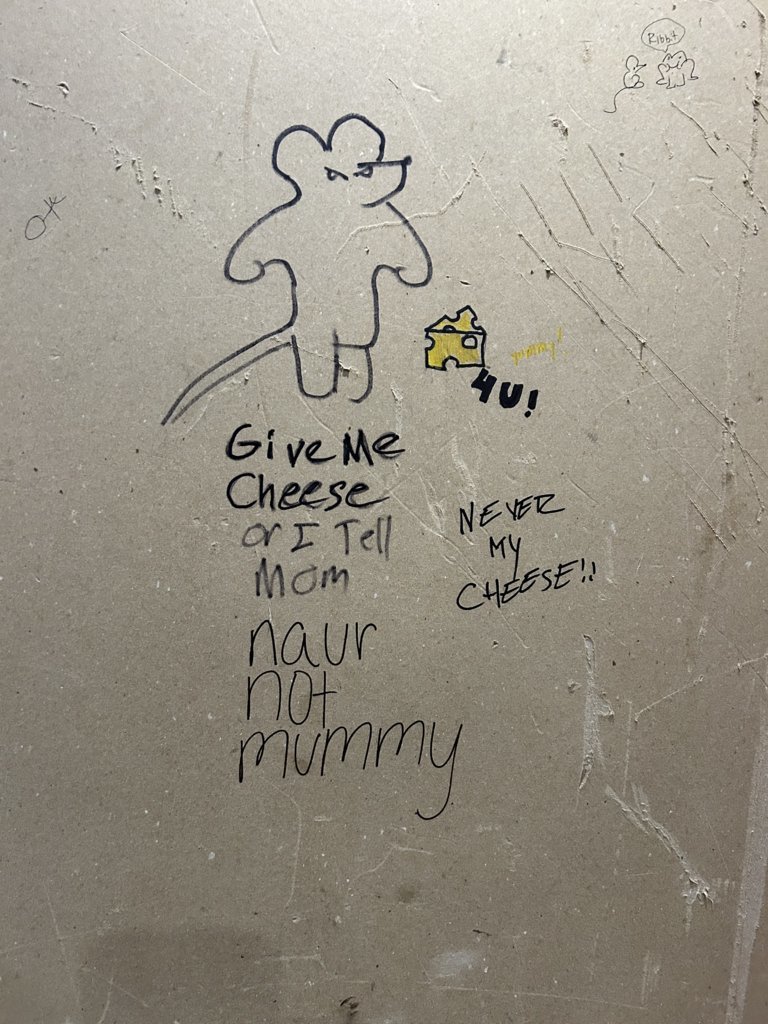 Ribbit
4U!
Give Me
Cheese
or I Tell
Mom
NEVER
MY
CHEESE!!
naur
not
mummy